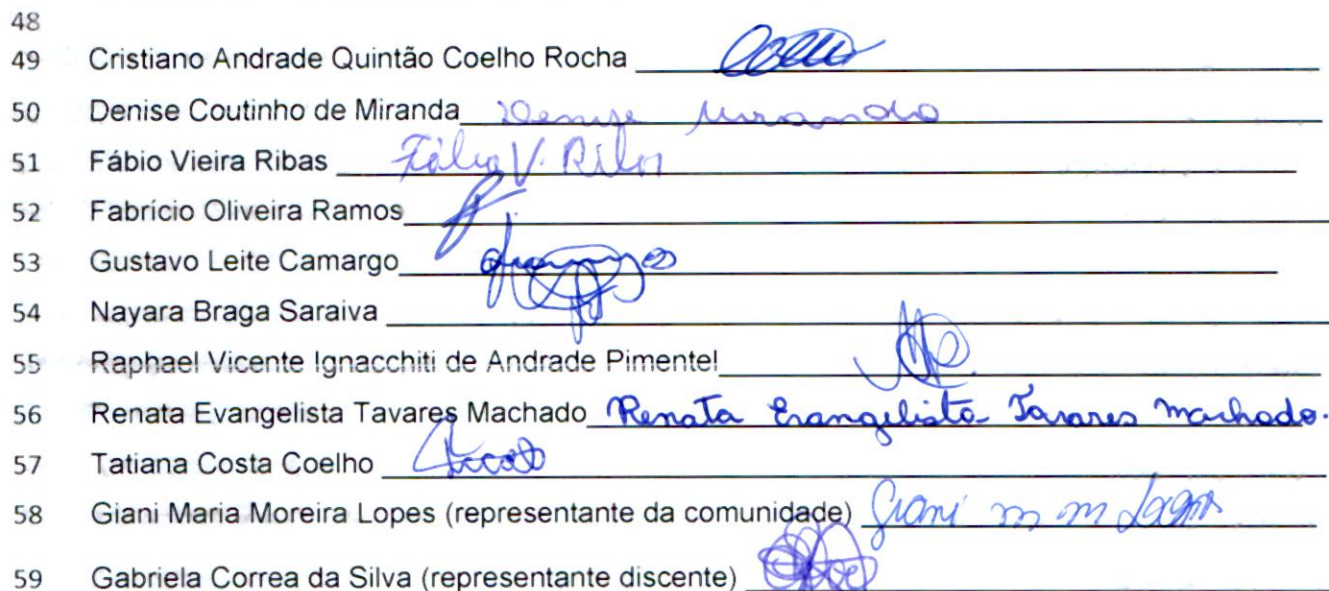 48
49 Cristiano Andrade Quintão Coelho Rocha
50 Denise Coutinho de Miranda Denise Miranda
51 Fábio Vieira Ribas Fábio V. Ribas
52 Fabrício Oliveira Ramos
53 Gustavo Leite Camargo
54 Nayara Braga Saraiva
55 Raphael Vicente Ignacchiti de Andrade Pimentel
56 Renata Evangelista Tavares Machado Renata Evangelista Tavares Machado.
57 Tatiana Costa Coelho
58 Giani Maria Moreira Lopes (representante da comunidade) Giani m m Lopes
59 Gabriela Correa da Silva (representante discente)